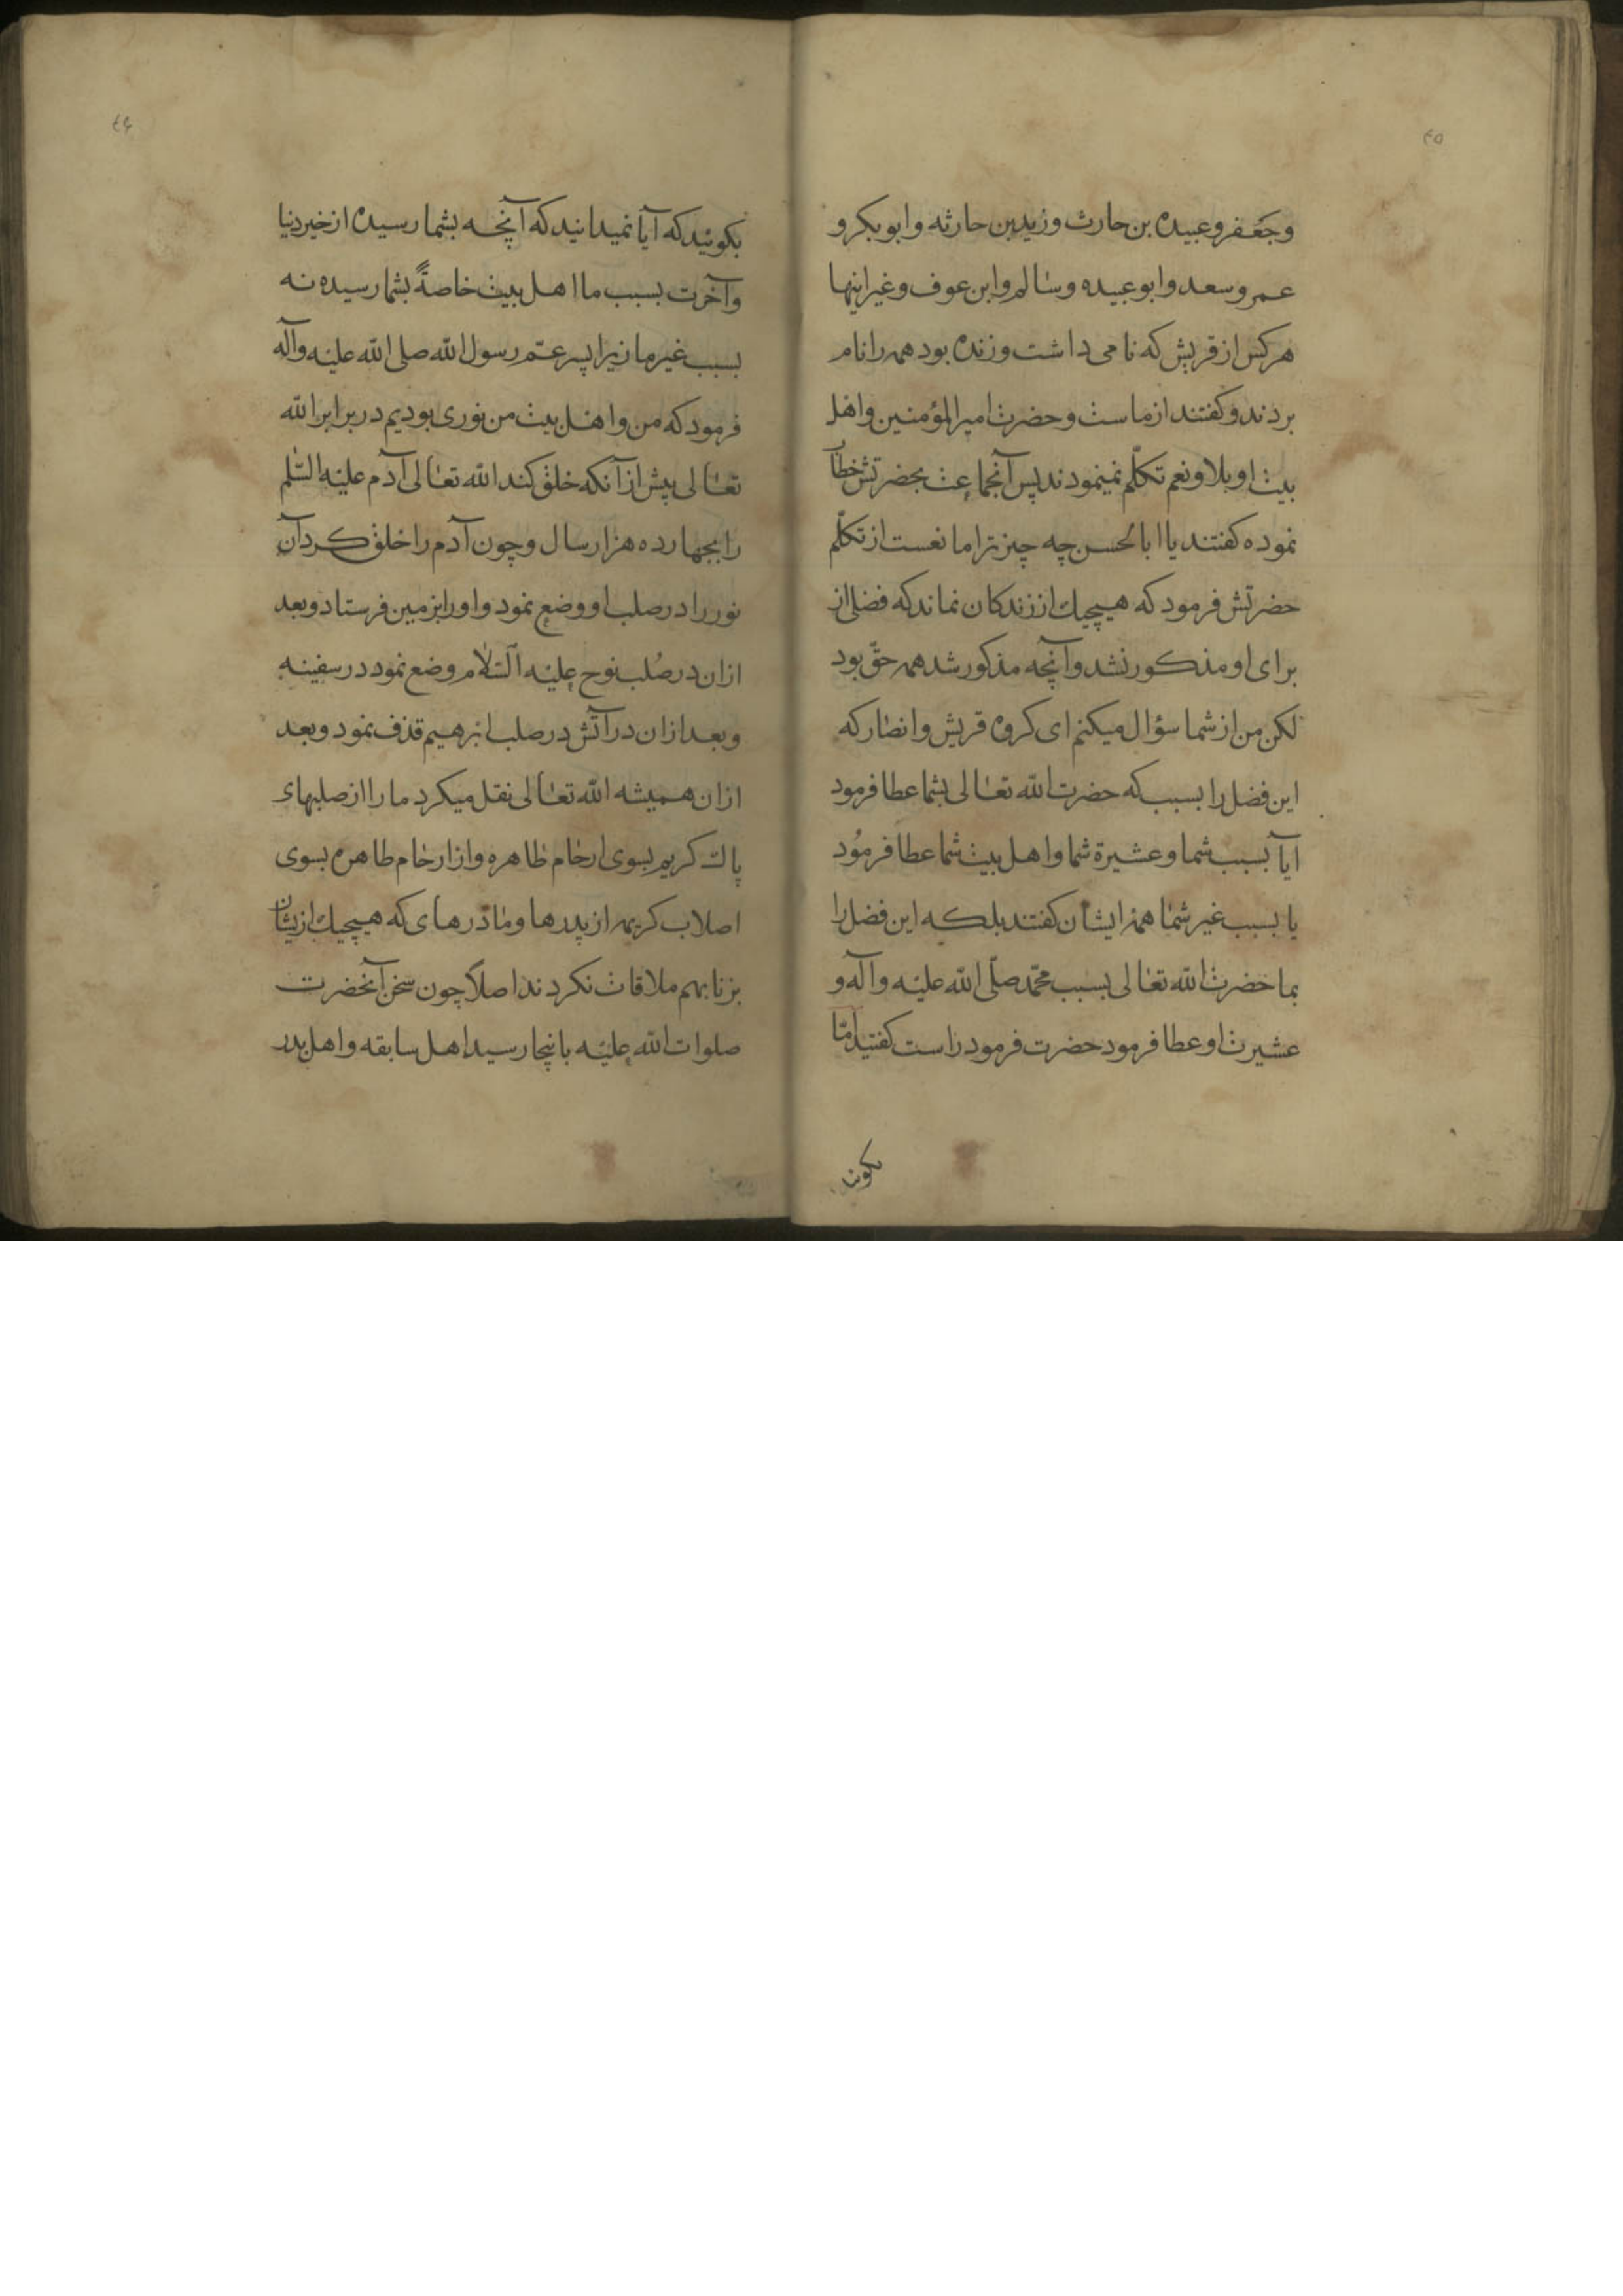 ٤٥
وجعفر وعبیده بن حارث وزید بن حارثه وابو بکر و
عمر وسعد وابو عبیده وسالم وابن عوف وغیر اینها
هر کس از قریش که نامی داشت وزنده بود همه را نام
بردند وکفتند از ماست وحضرت امیر المؤمنین واهل
بیت او بلا ونعم تکلّم نمینمودند پس آنجماعت بحضرتش خطاب
نموده کفتند یا ابا الحسن چه چیز ترا مانعست از تکلّم
حضرتش فرمود که هیچیك از زندکان نماند که فضلی از
برای او مذکور نشد وآنچه مذکور شد همه حقّ بود
لکن من از شما سؤال میکنم ای کروه قریش وانصار که
این فضل را بسبب که حضرت الله تعالی بشما عطا فرمود
ایا بسبب شما وعشیرة شما واهل بیت شما عطا فرمود
یا بسبب غیر شما همه ایشان کفتند بلکه این فضل را
بما حضرت الله تعالی بسبب محمّد صلّی الله علیه وآله و
عشیرت او عطا فرمود حضرت فرمود راست کفتید امّا
بکوئید
٤۶
بکوئید که آیا نمیدانید که آنچه بشما رسیده از خیر دنیا
وآخرت بسبب ما اهل بیت خاصةً بشما رسیده نه
بسبب غیر ما زیرا پسر عمّ رسول الله صلی الله علیه وآله
فرمود که من واهل بیت من نوری بودیم در برابر الله
تعالی پیش از آنکه خلق کند الله تعالی آدم علیه السّلم
را بجهارده هزار سال وچون آدم را خلق کرد آن
نور را در صلب او وضع نمود واو را بزمین فرستاد وبعد
ازان در صُلب نوح علیه السّلام وضع نمود در سفینه
وبعد ازان در آتش در صلب ابرهیم قذف نمود وبعد
ازان همیشه الله تعالی نقل میکرد ما را از صلبهای
پاك کریم بسوی ارحام طاهره واز ارحام طاهره بسوی
اصلاب کریمه از پدرها ومادرهای که هیچیك ازیشان
بزنا بهم ملاقات نکردند اصلاً چون سخن آنحضرت
صلوات الله علیه باینجا رسید اهل سابقه واهل بدر